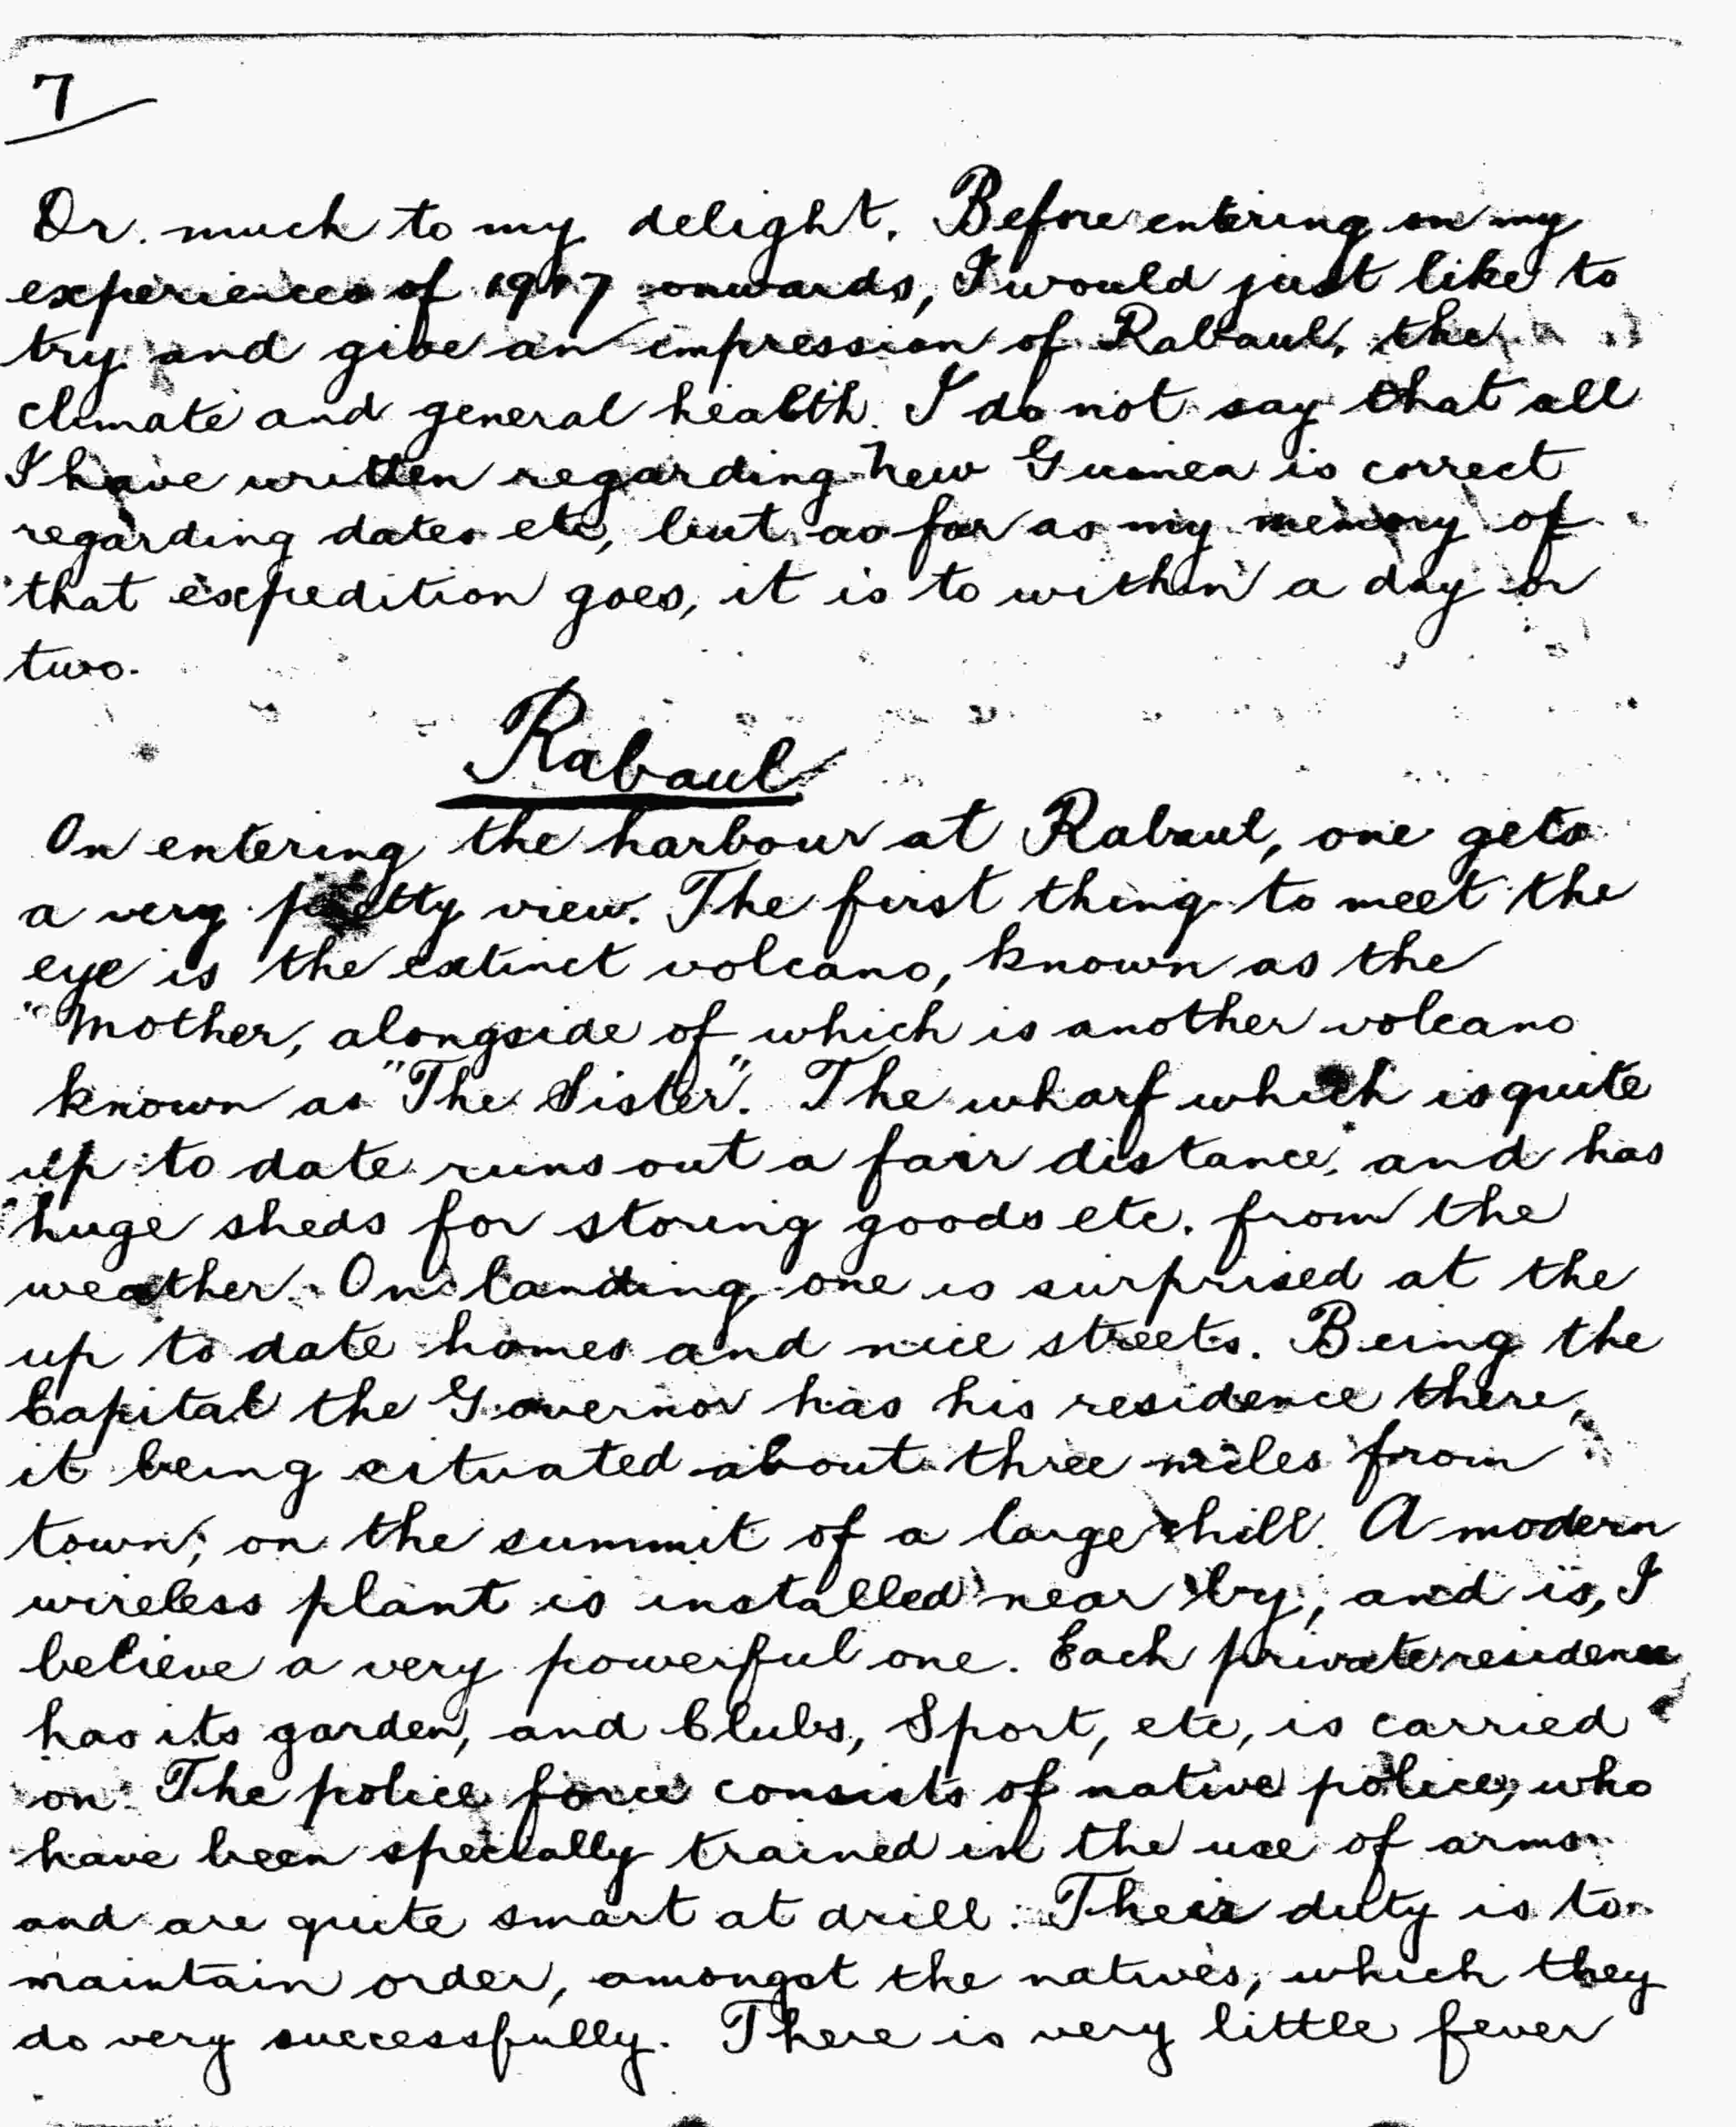 7
Dr. much to my delight. Before entering on my
experiences of 1917 onwards, I would just like to
try and give an impression of Rabaul, the
climate and general health. I do not say that all
I have written regarding New Guinea is correct
regarding dates etc, but as far as my memory of
that expedition goes, it is to within a day or
two.
Rabaul
On entering the harbour at Rabaul, one gets
a very pretty view. The first thing to meet the
eye is the extinct volcano, known as the
"Mother, alongside of which is another volcano
known as "The Sister". The wharf which is quite
up to date runs out a fair distance, and has
huge sheds for storing goods etc. from the
weather. On landing one is surprised at the
up to date homes and nice streets. Being the
Capital the Governor has his residence there,
it being situated about three miles from
town, on the summit of a large hill. A modern
wireless plant is installed near by, and is, I
believe a very powerful one. Each private residence
has its garden, and Clubs, Sport, etc, is carried
on. The police force consists of native police, who
have been specially trained in the use of arms
and are quite smart at drill. Their duty is to
maintain order, amongst the natives, which they
do very successfully. There is very little fever